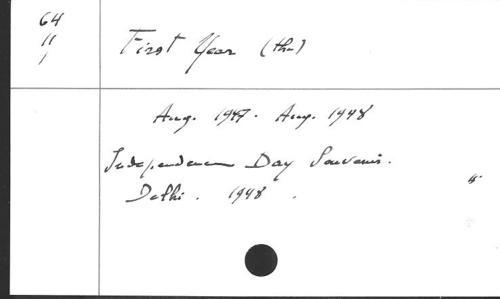 64
11
1
First Year (the)
Aug. 1947 - Aug. 1948
Independence Day Souvenir.
Delhi. 1948.